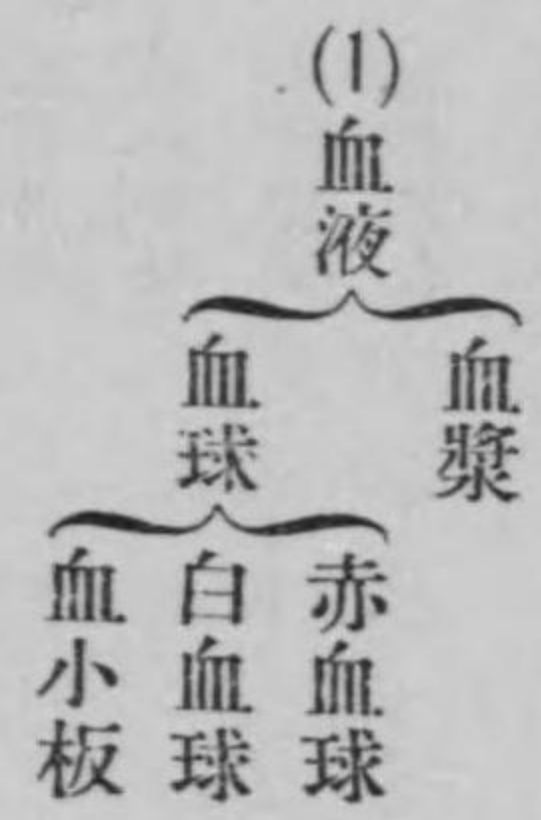 (1)血液
血漿
血球
赤血球
白血球
血小板